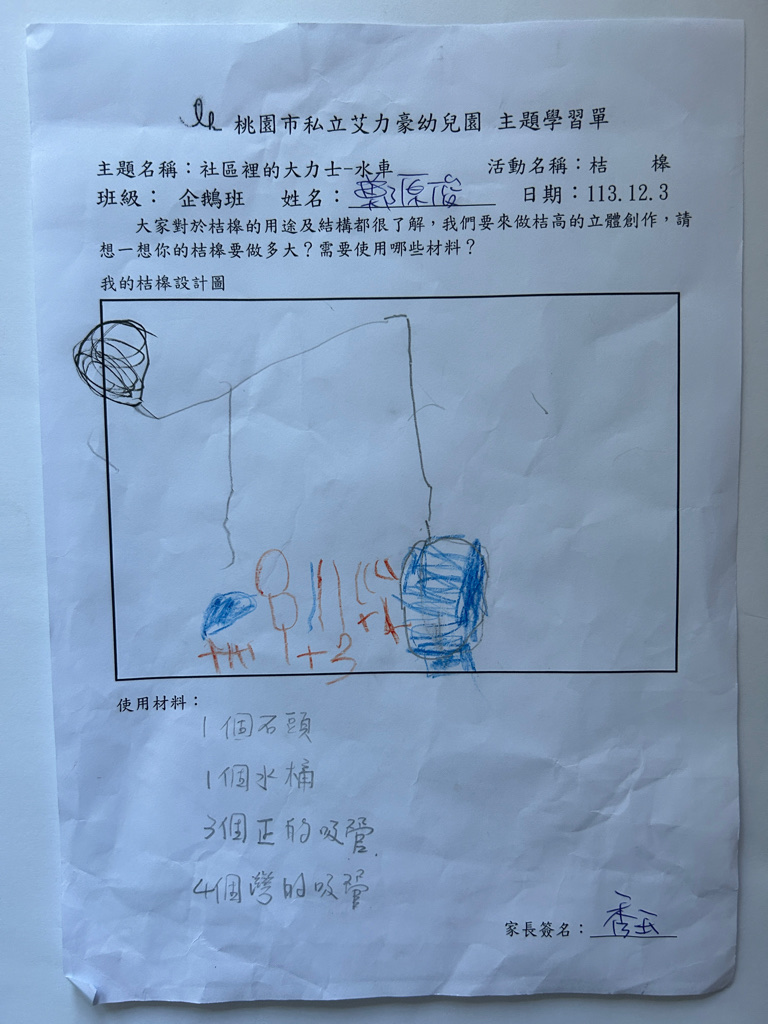 桃園市私立艾力豪幼兒園 主題學習單
主題名稱：社區裡的大力士-水車 活動名稱：桔 槔
班級： 企鵝班 姓名：鄭原俊 日期：113.12.3
大家對於桔槔的用途及結構都很了解，我們要來做桔高的立體創作，請
想一想你的桔槔要做多大？需要使用哪些材料？
我的桔槔設計圖
+3
使用材料：
1個石頭
1個水桶
3個正的吸管
4個彎的吸管
家長簽名：